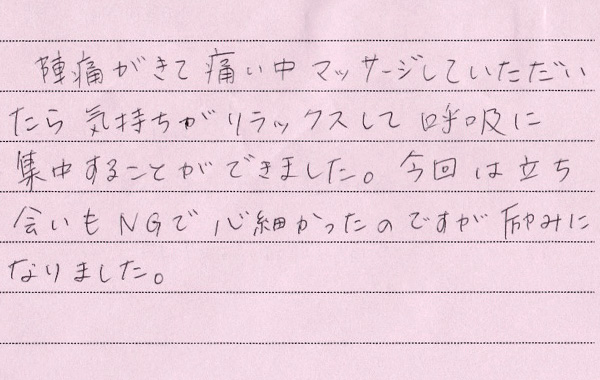 陣痛がきて痛い中マッサージしていただい
たら気持ちがリラックスして呼吸に
集中することができました。今回は立ち
会いもNGで心細かったのですが励みに
なりました。